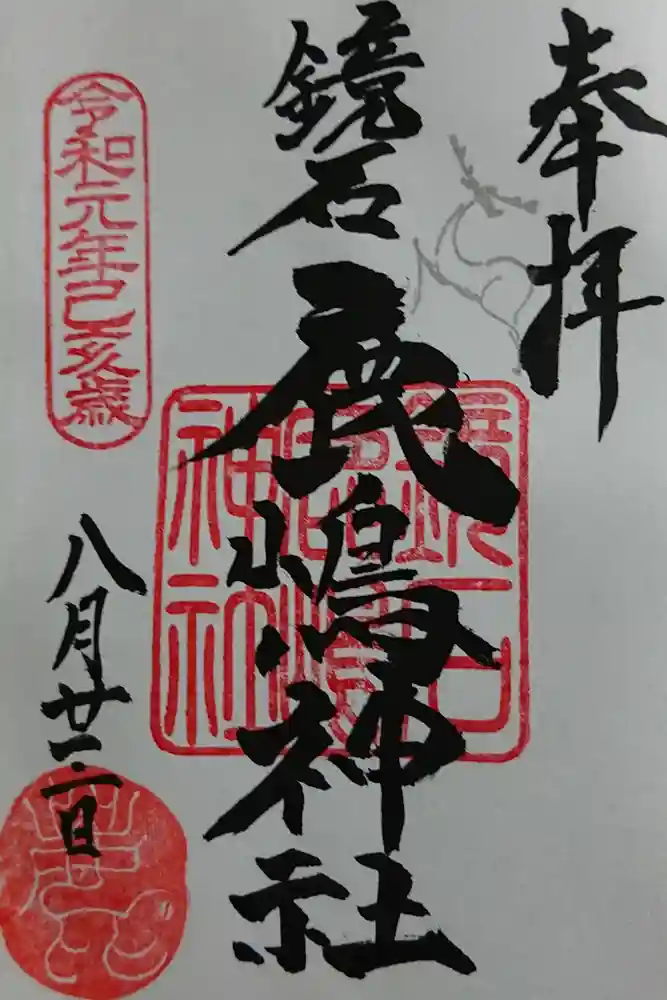 奉拝
鏡石鹿嶋神社
鏡石
鹿嶋
神社
令和元年己亥歳
八月廿二日